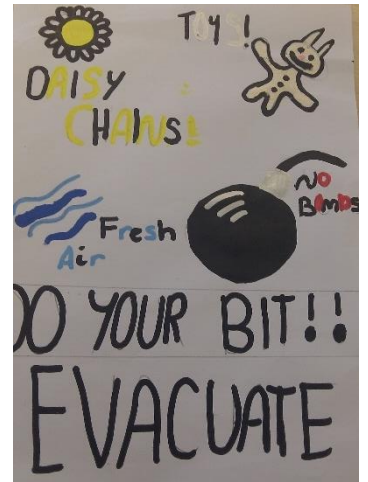 TOYS!
DAISY
CHAINS!
NO
BOMBS
Fresh
Air
DO YOUR BIT!!
EVACUATE